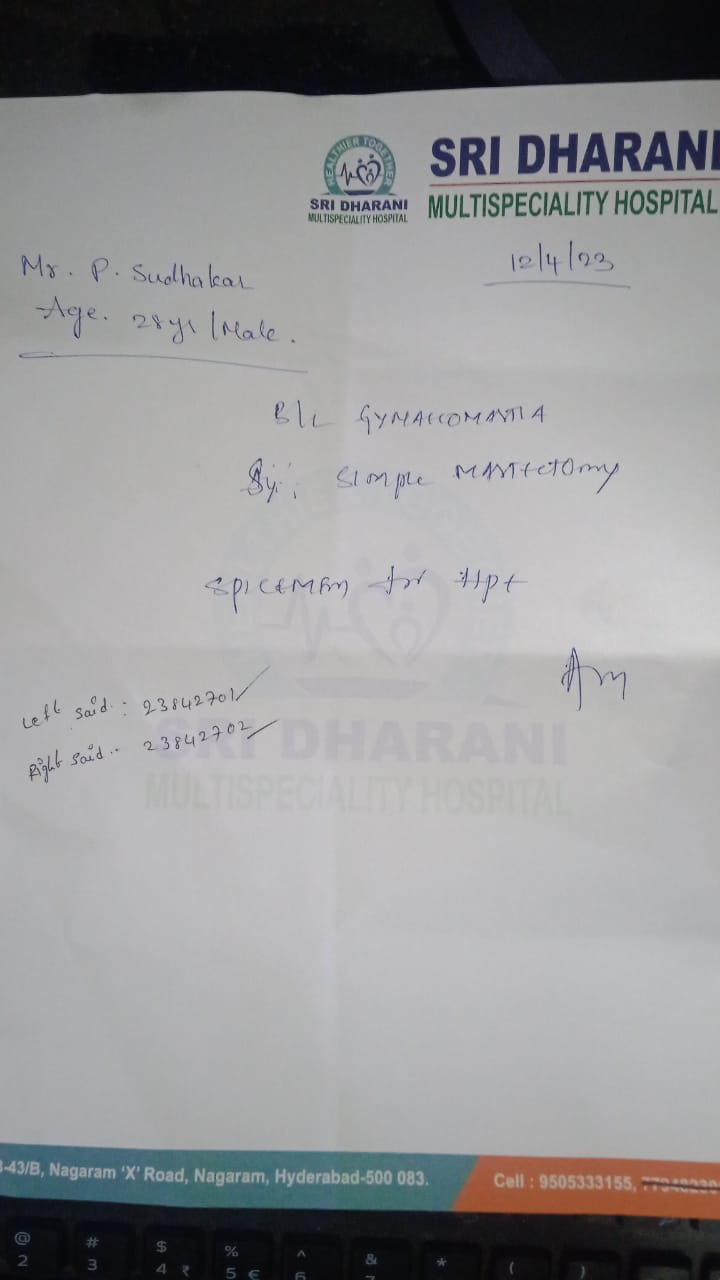 HEALTHIER TOGETHER
SRI DHARANI
MULTISPECIALITY HOSPITAL
SRI DHARANI
MULTISPECIALITY HOSPITAL
12/4/23
Mr. P. Sudhakar
Age. 28 yrs / Male.
B/L GYNAECOMASTIA
Sy: Simple MASTECTOMY
SPICEMAN for Hpt
Left Said. : 23842701
Right Said.. 23842702
SRI DHARANI
MULTISPECIALITY HOSPITAL
3-43/B, Nagaram 'X' Road, Nagaram, Hyderabad-500 083.
Cell : 9505333155,
@ # $ % ^ & * ( )
2 3 4 ₹ 5 € 6 7